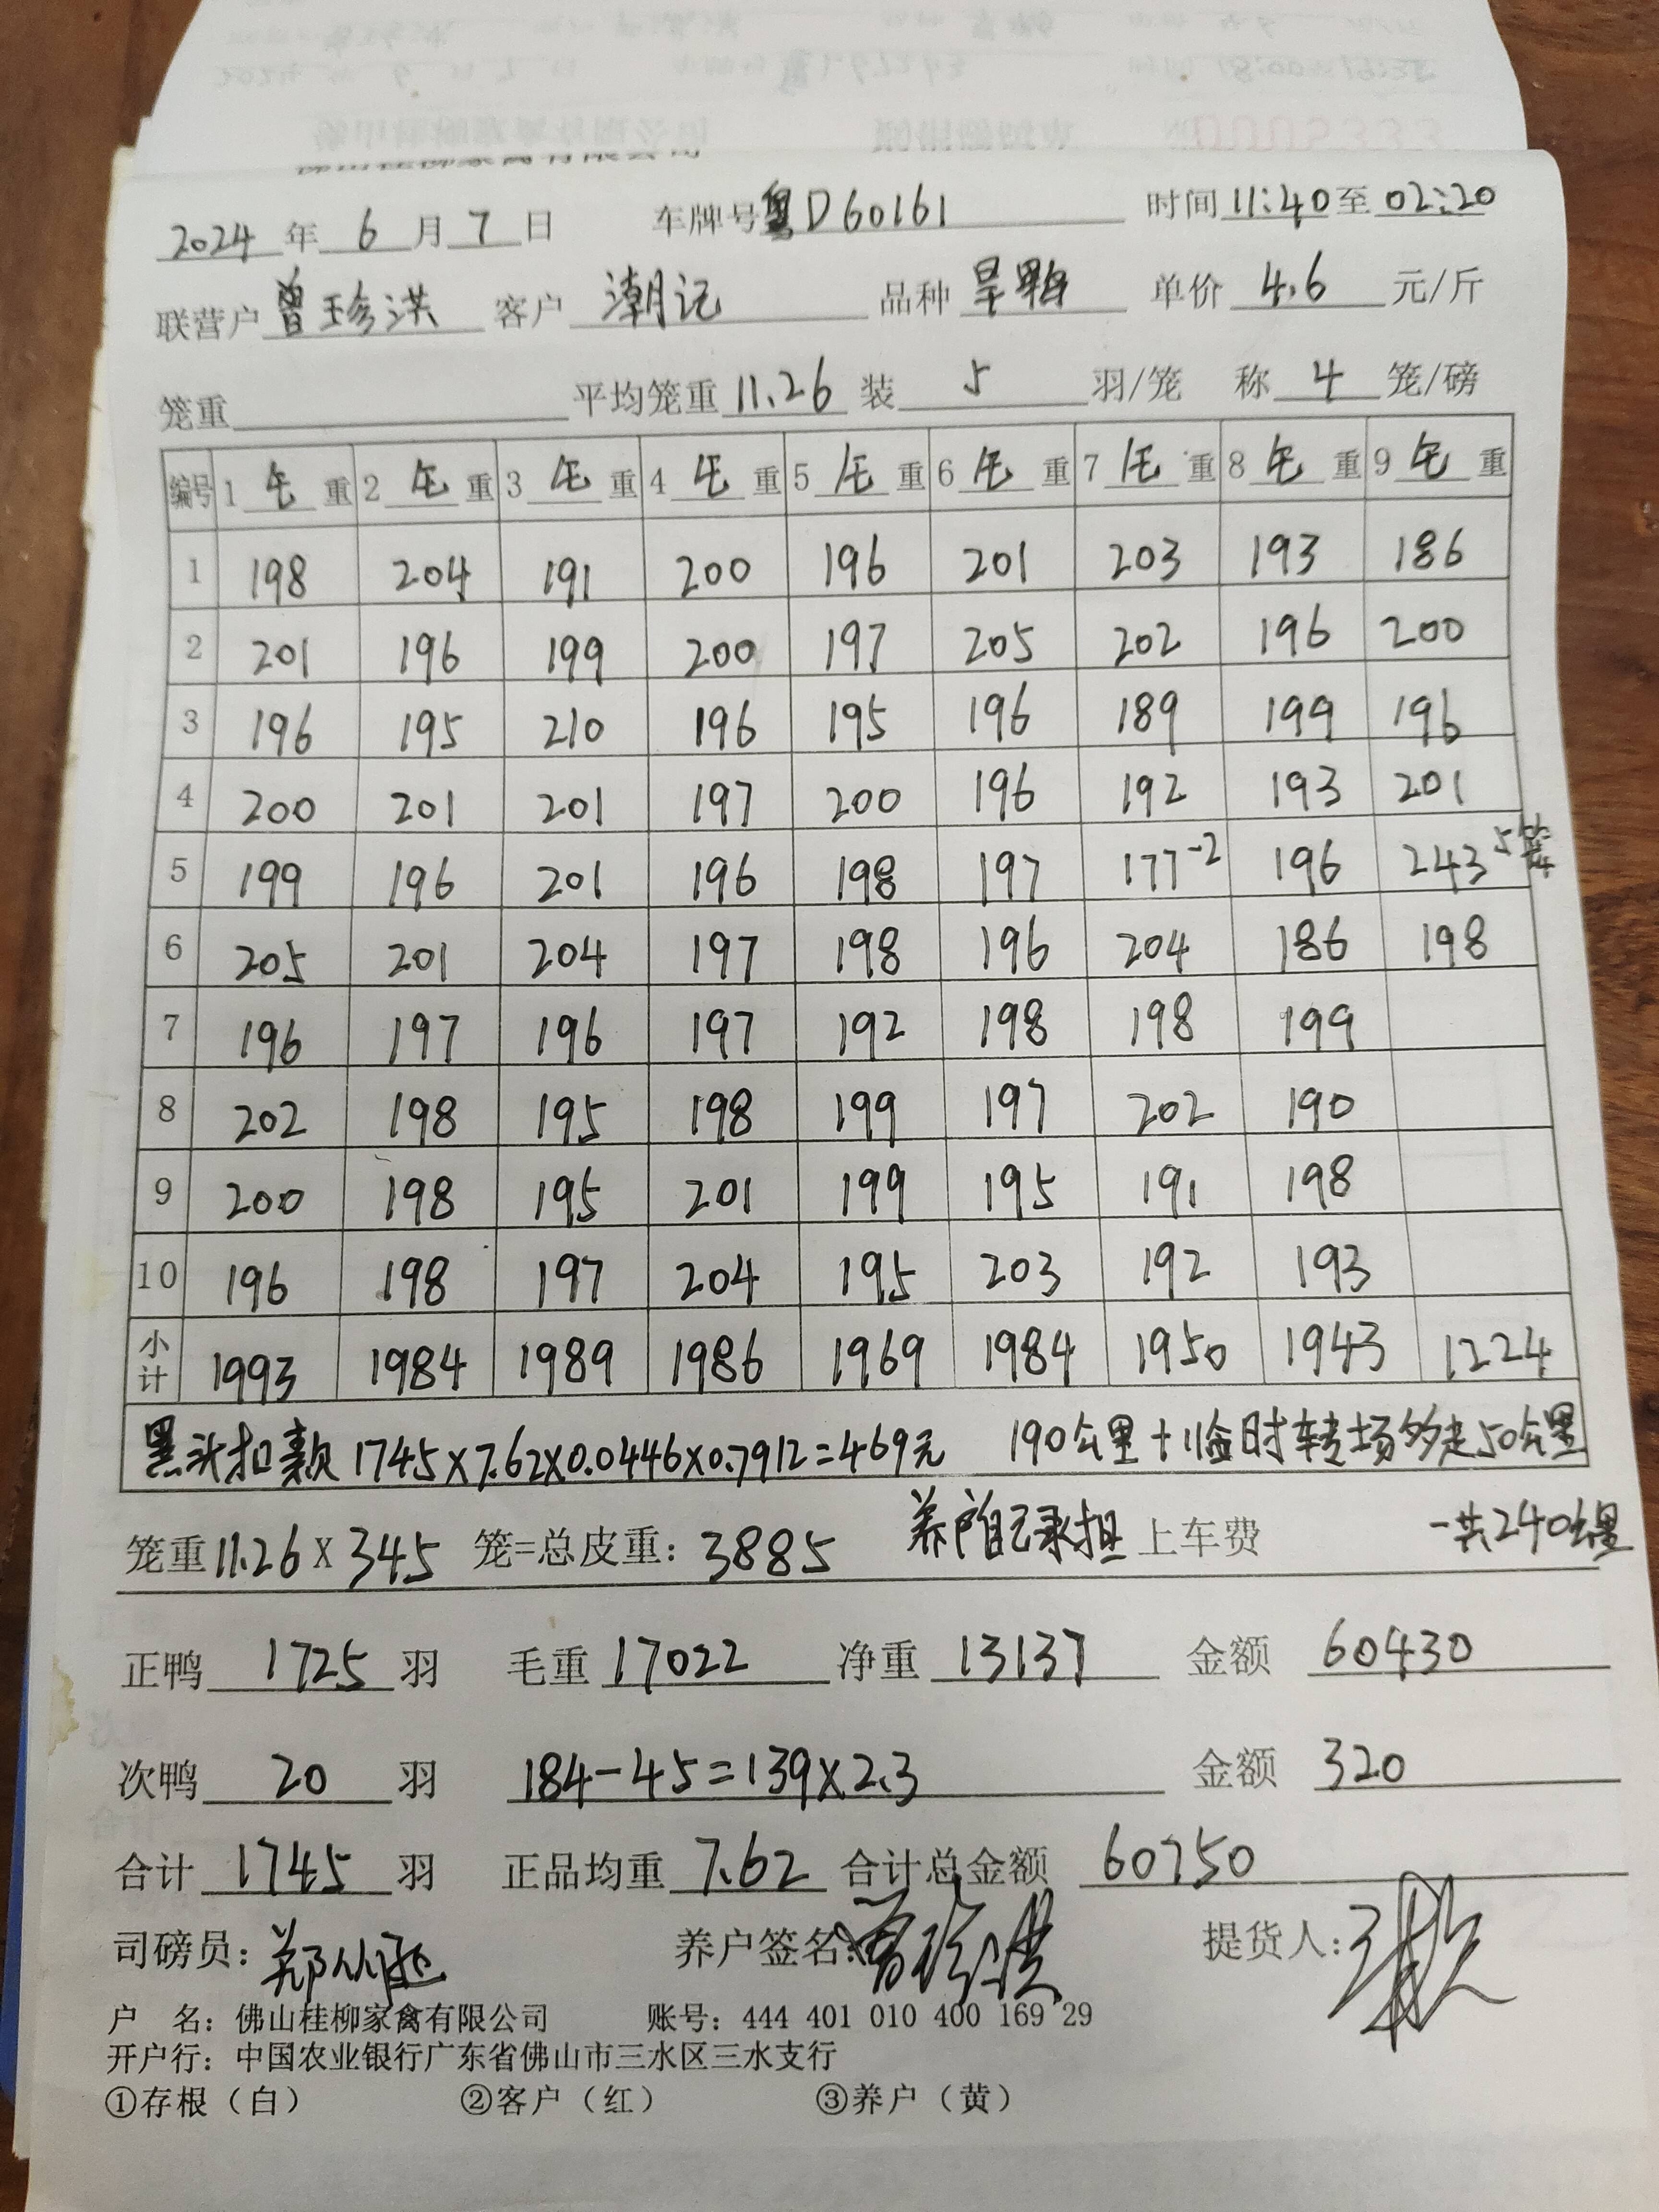 2024年6月7日 车牌号粤D60161 时间11:40至02:20
联营户曾珍洪 客户潮记 品种旱鸭 单价4.6元/斤
笼重 平均笼重11.26 装5羽/笼 称4笼/磅
编号 1毛重 2毛重 3毛重 4毛重 5毛重 6毛重 7毛重 8毛重 9毛重
1 198 204 191 200 196 201 203 193 186
2 201 196 199 200 197 205 202 196 200
3 196 195 210 196 195 196 189 199 196
4 200 201 201 197 200 196 192 193 201
5 199 196 201 196 198 197 177-2 196 243 5笼
6 205 201 204 197 198 196 204 186 198
7 196 197 196 197 192 198 198 199
8 202 198 195 198 199 197 202 190
9 200 198 195 201 199 195 191 198
10 196 198 197 204 195 203 192 193
小计 1993 1984 1989 1986 1969 1984 1950 1943 1224
黑头扣款1745×7.62×0.0446×0.7912=469元 190公里+临时转场多走50公里
笼重11.26×345笼=总皮重:3885 养户自己承担上车费 一共240公里
正鸭1725羽 毛重17022 净重13137 金额60430
次鸭20羽 184-45=139×2.3 金额320
合计1745羽 正品均重7.62 合计总金额60750
司磅员:郑 养户签名:曾珍洪 提货人:
户 名:佛山桂柳家禽有限公司 账号:444 401 010 400 169 29
开户行:中国农业银行广东省佛山市三水区三水支行
①存根(白) ②客户(红) ③养户(黄)